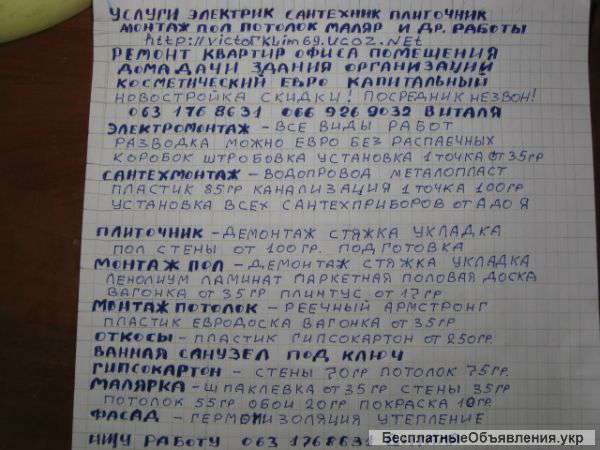 УСЛУГИ ЭЛЕКТРИК САНТЕХНИК ПЛИТОЧНИК
МОНТАЖ ПОЛ ПОТОЛОК МАЛЯР И ДР. РАБОТЫ
http://victorklim69.ucoz.net
РЕМОНТ КВАРТИР ОФИСА ПОМЕЩЕНИЯ
ДОМА ДАЧИ ЗДАНИЯ ОРГАНИЗАЦИЙ
КОСМЕТИЧЕСКИЙ ЕВРО КАПИТАЛЬНЫЙ
НОВОСТРОЙКА СКИДКИ! ПОСРЕДНИК НЕ ЗВОН!
063 176 8631 066 926 9032 ВИТАЛЯ
ЭЛЕКТРОМОНТАЖ - ВСЕ ВИДЫ РАБОТ
РАЗВОДКА МОЖНО ЕВРО БЕЗ РАСПАЕЧНЫХ
КОРОБОК ШТРОБОВКА УСТАНОВКА 1 ТОЧКА ОТ 35 ГР
САНТЕХМОНТАЖ - ВОДОПРОВОД МЕТАЛОПЛАСТ
ПЛАСТИК 85 ГР КАНАЛИЗАЦИЯ 1 ТОЧКА 100 ГР
УСТАНОВКА ВСЕХ САНТЕХПРИБОРОВ ОТ А ДО Я
ПЛИТОЧНИК - ДЕМОНТАЖ СТЯЖКА УКЛАДКА
ПОЛ СТЕНЫ ОТ 100 ГР. ПОДГОТОВКА
МОНТАЖ ПОЛ - ДЕМОНТАЖ СТЯЖКА УКЛАДКА
ЛЕНОЛИУМ ЛАМИНАТ ПАРКЕТНАЯ ПОЛОВАЯ ДОСКА
ВАГОНКА ОТ 35 ГР ПЛИНТУС ОТ 17 ГР
МОНТАЖ ПОТОЛОК - РЕЕЧНЫЙ АРМСТРОНГ
ПЛАСТИК ЕВРОДОСКА ВАГОНКА ОТ 35 ГР
ОТКОСЫ - ПЛАСТИК ГИПСОКАРТОН ОТ 250 ГР.
ВАННАЯ САНУЗЕЛ ПОД КЛЮЧ
ГИПСОКАРТОН - СТЕНЫ 70 ГР ПОТОЛОК 75 ГР.
МАЛЯРКА - ШПАКЛЕВКА ОТ 35 ГР СТЕНЫ 35 ГР
ПОТОЛОК 55 ГР ОБОИ 20 ГР ПОКРАСКА 10 ГР.
ФАСАД - ГЕРМОИЗОЛЯЦИЯ УТЕПЛЕНИЕ
ИЩУ РАБОТУ 063 1768631
БесплатныеОбъявления.укр